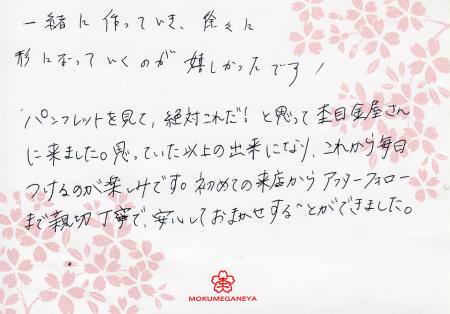 一緒に作っていき、徐々に
形になっていくのが嬉しかったです！
パンフレットを見て、絶対これだ！と思って杢目金屋さん
に来ました。思っていた以上の出来になり、これから毎日
つけるのが楽しみです。初めての来店からアフターフォロー
まで親切丁寧で、安心しておまかせすることができました。
杢
MOKUMEGANEYA